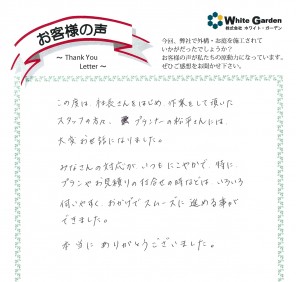 お客様の声
~ Thank You
Letter ~
White Garden
株式会社 ホワイト・ガーデン
今回、弊社で外構・お庭を施工されて
いかがだったでしょうか?
お客様の声が私たちの原動力になっています。
ぜひご感想をお聞かせ下さい。
この度は、村長さんをはじめ、作業をして頂いた
スタッフの方々、プランナーの松平さんには、
大変お世話になりました。
みなさんの対応が、いつもにこやかで、特に、
プランやお見積りの打合せの時などは、いろいろ
伺いやすく、おかげでスムーズに進める事が
できました。
本当にありがとうございました。